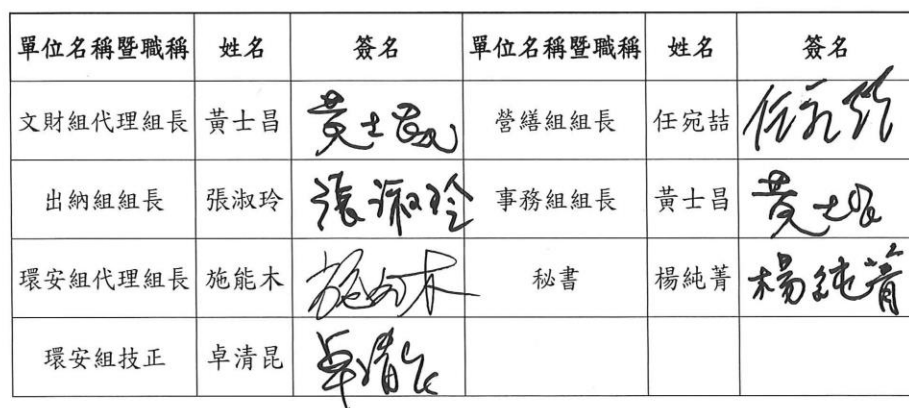 單位名稱暨職稱 姓名 簽名 單位名稱暨職稱 姓名 簽名
文財組代理組長 黃士昌 黃士昌 營繕組組長 任宛喆
出納組組長 張淑玲 張淑玲 事務組組長 黃士昌 黃士昌
環安組代理組長 施能木 施能木 秘書 楊純菁 楊純菁
環安組技正 卓清昆 卓清昆